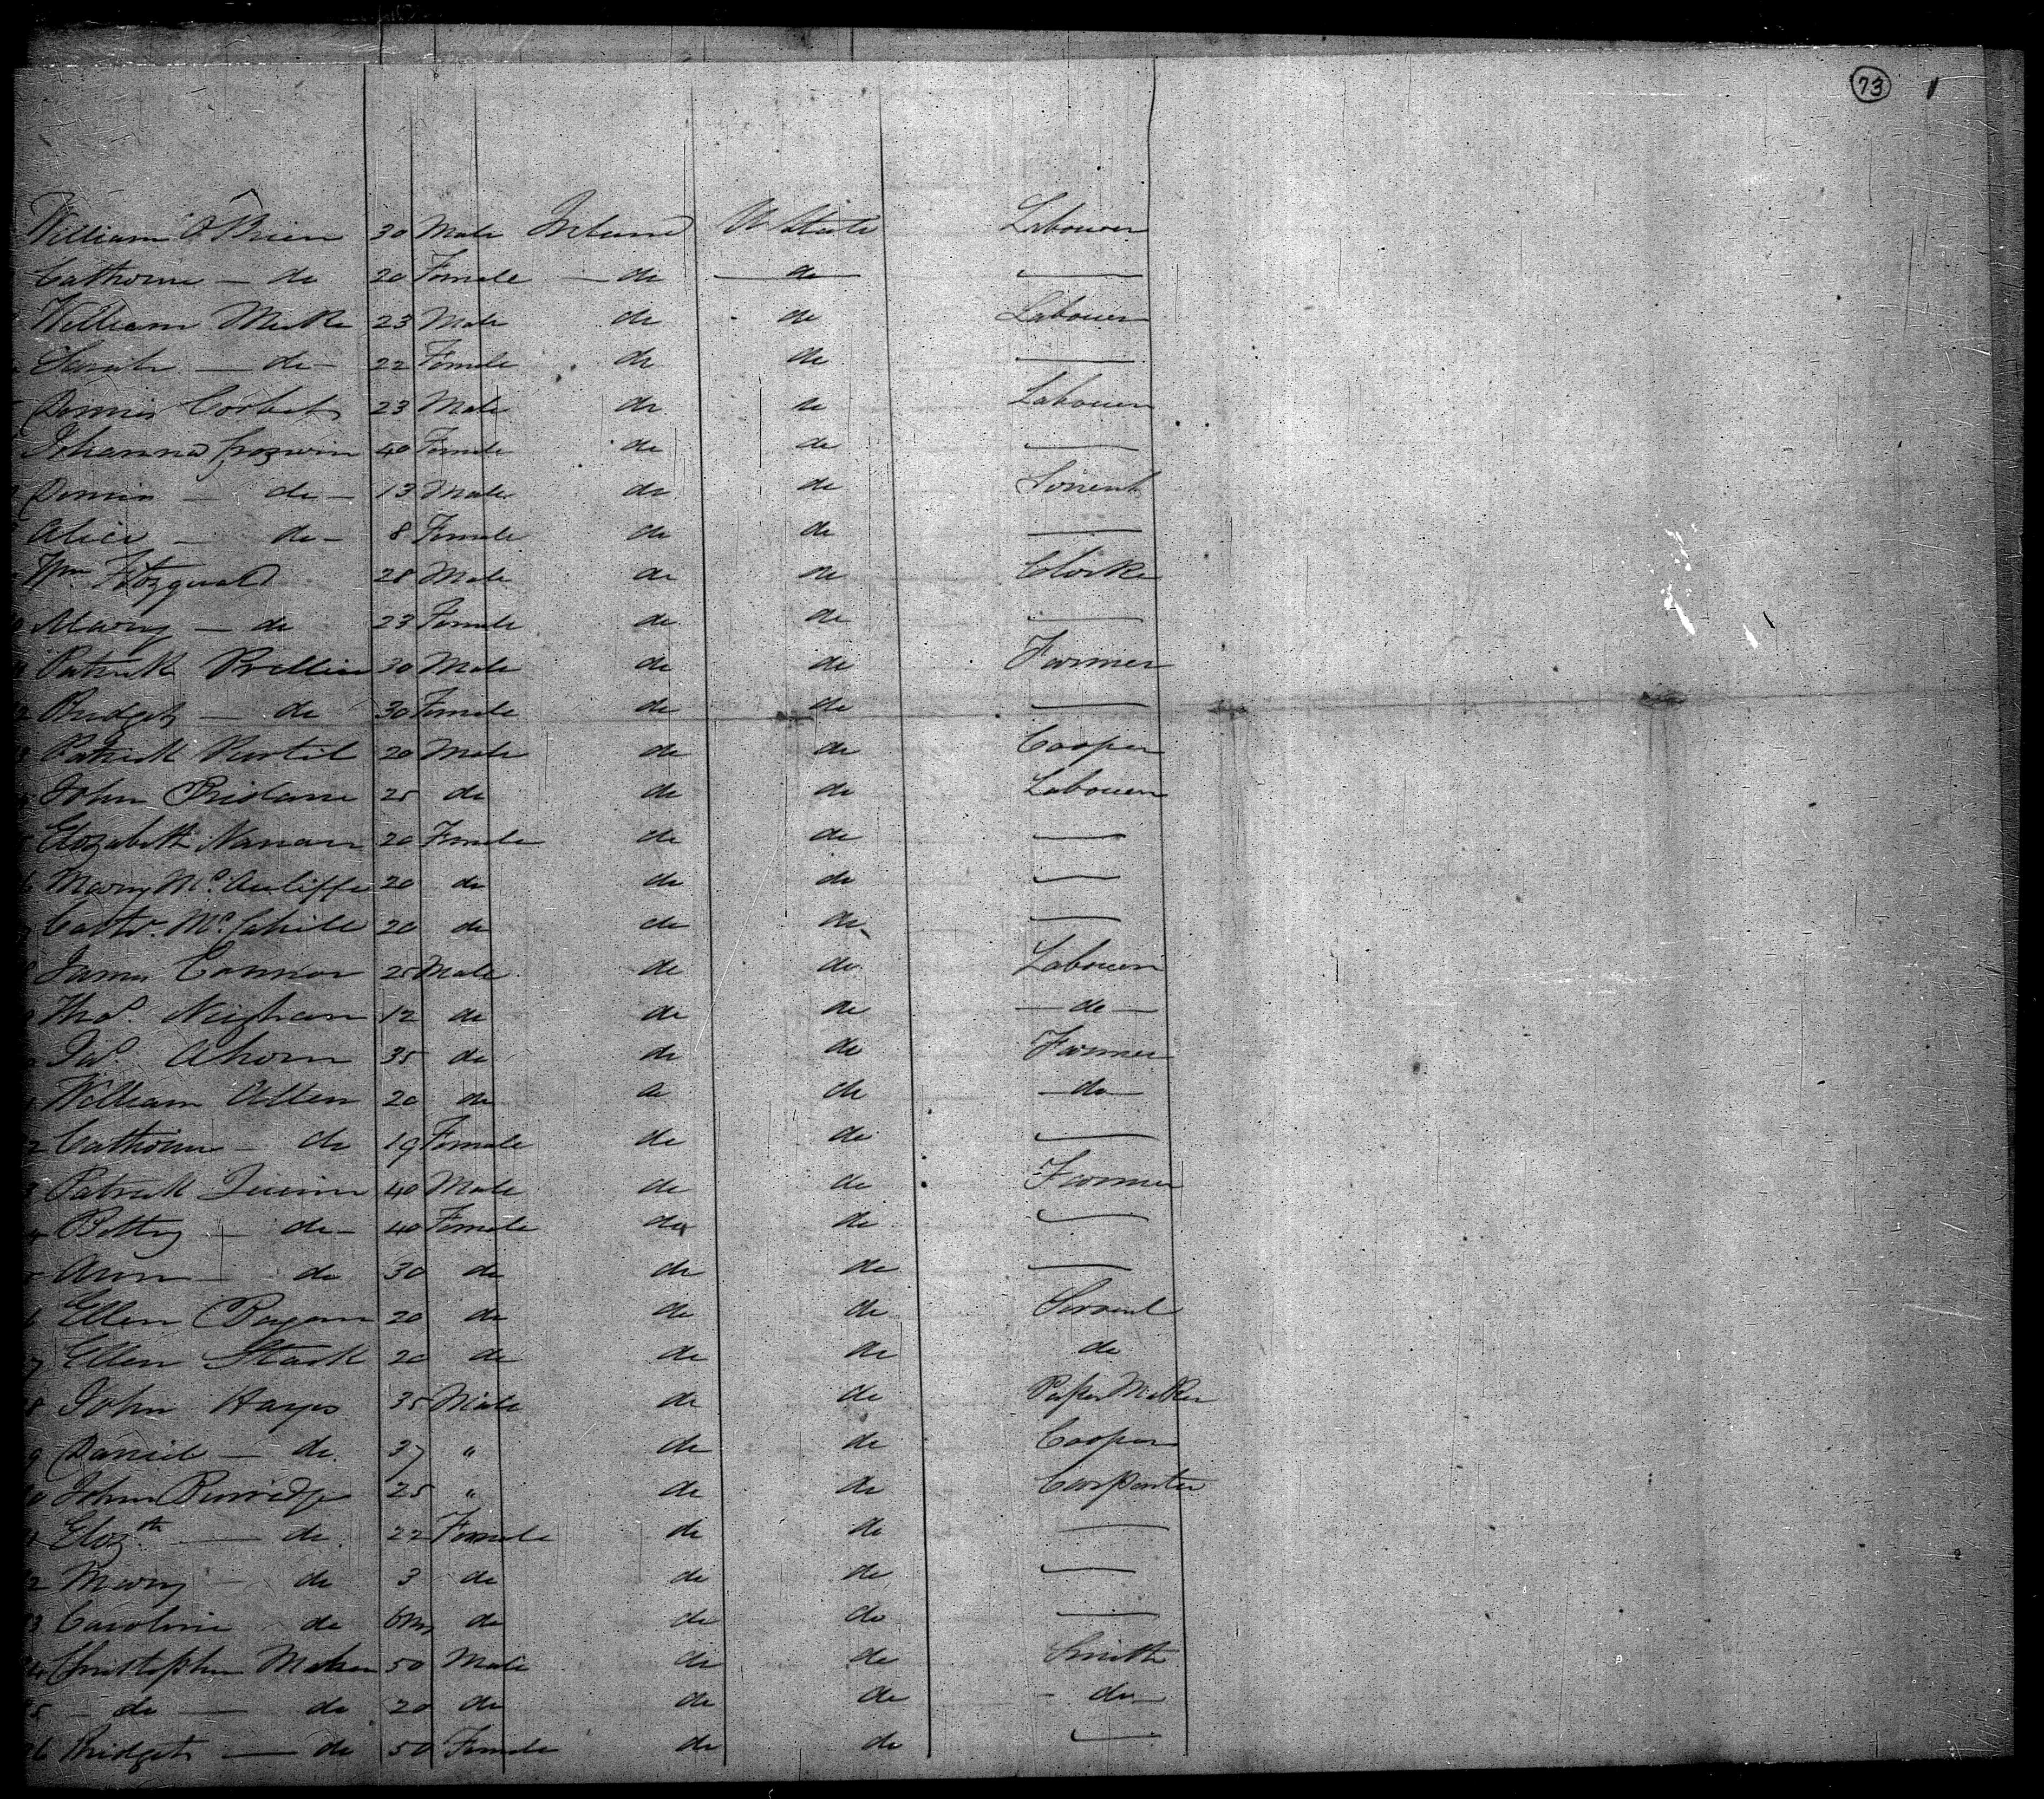 73
William O'Brien 30 Male Ireland U States Labourer
Catherine — do 20 Female — do — do —
William Meske 23 Male do do Labourer
Sarah — do — 22 Female do do —
Dennis Corbett 23 Male do do Labourer
Johanna 40 Female do do —
Dennis — do — 13 Male do do Servent
Alice — do — 8 Female do do —
Wm Fitzgerald 28 Male do do Clerke
10 Mary — do 23 Female do do —
11 Patrick 30 Male do do Farmer
12 Bridget — do 30 Female do do —
13 Patrick 20 Male do do Cooper
14 John 25 do do do Labourer
15 Elizabeth 20 Female do do —
16 Mary McAuliffe 20 do do do —
17 Cathr. McCahill 20 do do do —
18 James Connor 25 Male do do Labourer
19 Thos. 12 do do do — do —
20 Jas. Ahern 35 do do do Farmer
21 William Allen 20 do do do — do —
22 Catherine — do 19 Female do do —
23 Patrick Quinn 40 Male do do Farmer
24 Betty — do — 40 Female do do —
25 Ann — do 30 do do do —
26 Ellen 20 do do do Servent
27 Ellen Stack 20 do do do do
28 John Hayes 35 Male do do Paper Maker
29 Daniel — do. 37 " do do Cooper
30 John Burridge 25 " do do Carpenter
31 Elizth — do. 22 Female do do —
32 Mary — do 3 do do do —
33 Caroline do 6m do do do —
34 Christopher Maher 50 Male do do Smith
35 — do — do 20 do do do — do —
36 Bridget — do 50 Female do do —